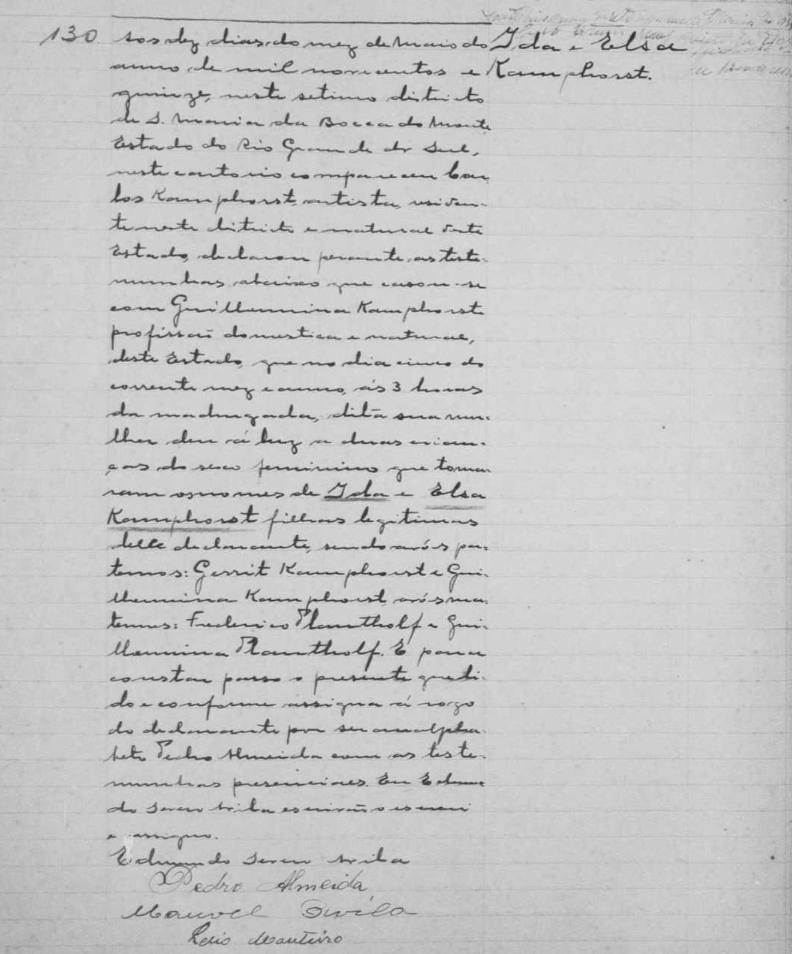 130 Aos dez dias do mez de Maio do Ida e Elsa
anno de mil novecentos e Kamphorst.
quinze, neste setimo districto
de S. Maria da Bocca do Monte
Estado do Rio Grande do Sul,
neste cartorio compareceu Car
los Kamphorst, artista, residen-
te neste districto e natural deste
Estado, declarou perante as teste-
munhas abaixo que casou-se
com Guilhermina Kamphorst
profissão domestica e natural,
deste Estado, que no dia cinco do
corrente mez e anno, ás 3 horas
da madrugada, dita sua mu-
lher deu á luz a duas crian-
ças do sexo feminino que toma-
ram os nomes de Ida e Elsa
Kamphorst filhas legitimas
delle declarante, sendo avós pa-
ternos: Gerrit Kamphorst e Gui-
lhermina Kamphorst, avós ma-
ternos: Frederico e Gui-
lhermina E para
constar passo o presente que li-
do e conforme assigna á rogo
do declarante por ser analpha
beto Pedro Almeida com as teste-
munhas presenciaes. Eu Edmun
do escrivão o escrevi
e assigno.
Edmundo
Pedro Almeida
Manoel Avila
Monteiro